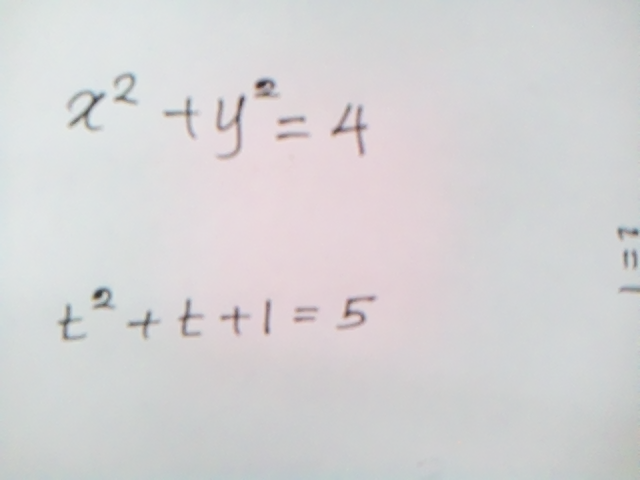 x² + y² = 4
t² + t + 1 = 5